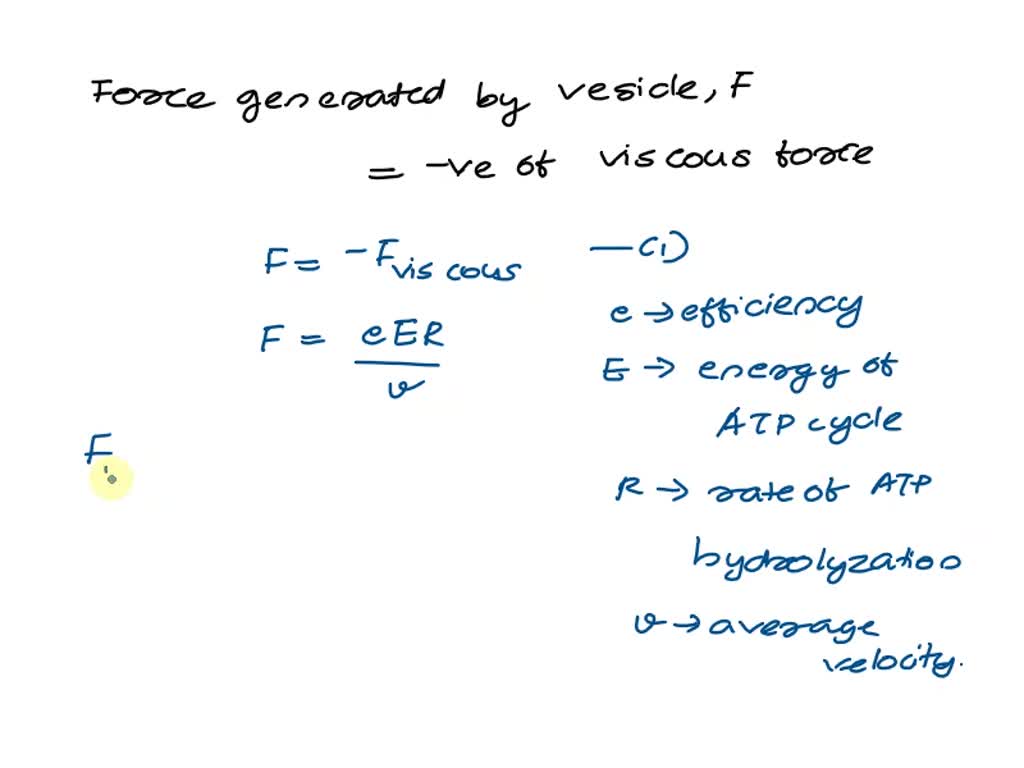 Force generated by vesicle, F
= -ve of viscous force
F = -Fviscous —(1)
e → efficiency
F = eER/v
E → energy of
ATP cycle
F
R → rate of ATP
hydrolyzation
v → average
velocity.